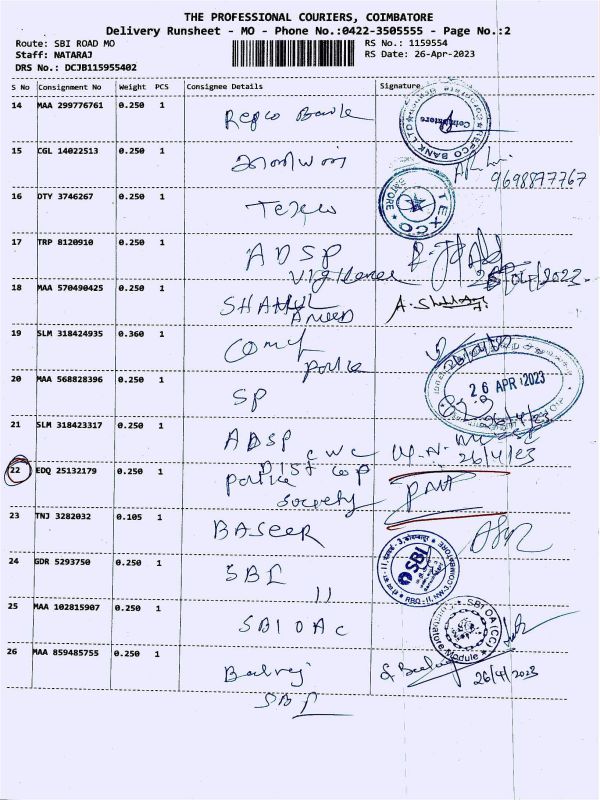 THE PROFESSIONAL COURIERS, COIMBATORE
Delivery Runsheet - MO - Phone No.:0422-3505555 - Page No.:2
Route: SBI ROAD MO
Staff: NATARAJ
DRS No.: DCJB115955402
RS No.: 1159554
RS Date: 26-Apr-2023
S No Consignment No Weight PCS Consignee Details Signature
14 MAA 299776761 0.250 1 Repco Bank REPCO BANK LTD Coimbatore
15 CGL 14022513 0.250 1 9698877767
16 DTY 3746267 0.250 1 Texco TEXCO
17 TRP 8120910 0.250 1 ADSP
Vigilence
18 MAA 570490425 0.250 1 SHAHUL
AMEED
19 SLM 318424935 0.360 1 Comf
police
20 MAA 568828396 0.250 1 SP 26 APR 2023
21 SLM 318423317 0.250 1 ADSP CWC
26/4/23
22 EDQ 25132179 0.250 1 Police Dist cop
society
23 TNJ 3282032 0.105 1 BASEER
24 GDR 5293750 0.250 1 SBI SBI RBO-II, NW-3, COIMBATORE
25 MAA 102815907 0.250 1 SBI OAC SBI OA (CC) Coimbatore Module
26 MAA 859485755 0.250 1 Balraj 26/4/2023
SBI